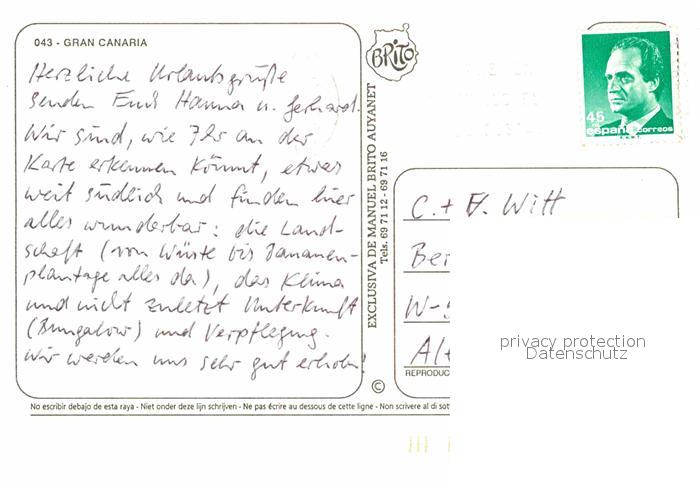 043 - GRAN CANARIA
Herzliche Urlaubsgrüße
senden Euch Hanna u. Gerhard.
Wir sind, wie Ihr an der
Karte erkennen könnt, etwas
weit südlich und finden hier
alles wunderbar: die Land-
schaft (von Wüste bis Bananen-
plantage alles da), das Klima
und nicht zuletzt Unterkunft
(Bungalow) und Verpflegung.
Wir werden uns sehr gut erholen!
BRITO
EXCLUSIVA DE MANUEL BRITO AUYANET
Tels. 69 71 12 - 69 71 16
©
45
españa correos
C. + A. Witt
Ber
W-
Alt
REPRODUC
privacy protection
Datenschutz
No escribir debajo de esta raya - Niet onder deze lijn schrijven - Ne pas écrire au dessous de cette ligne - Non scrivere al di sot